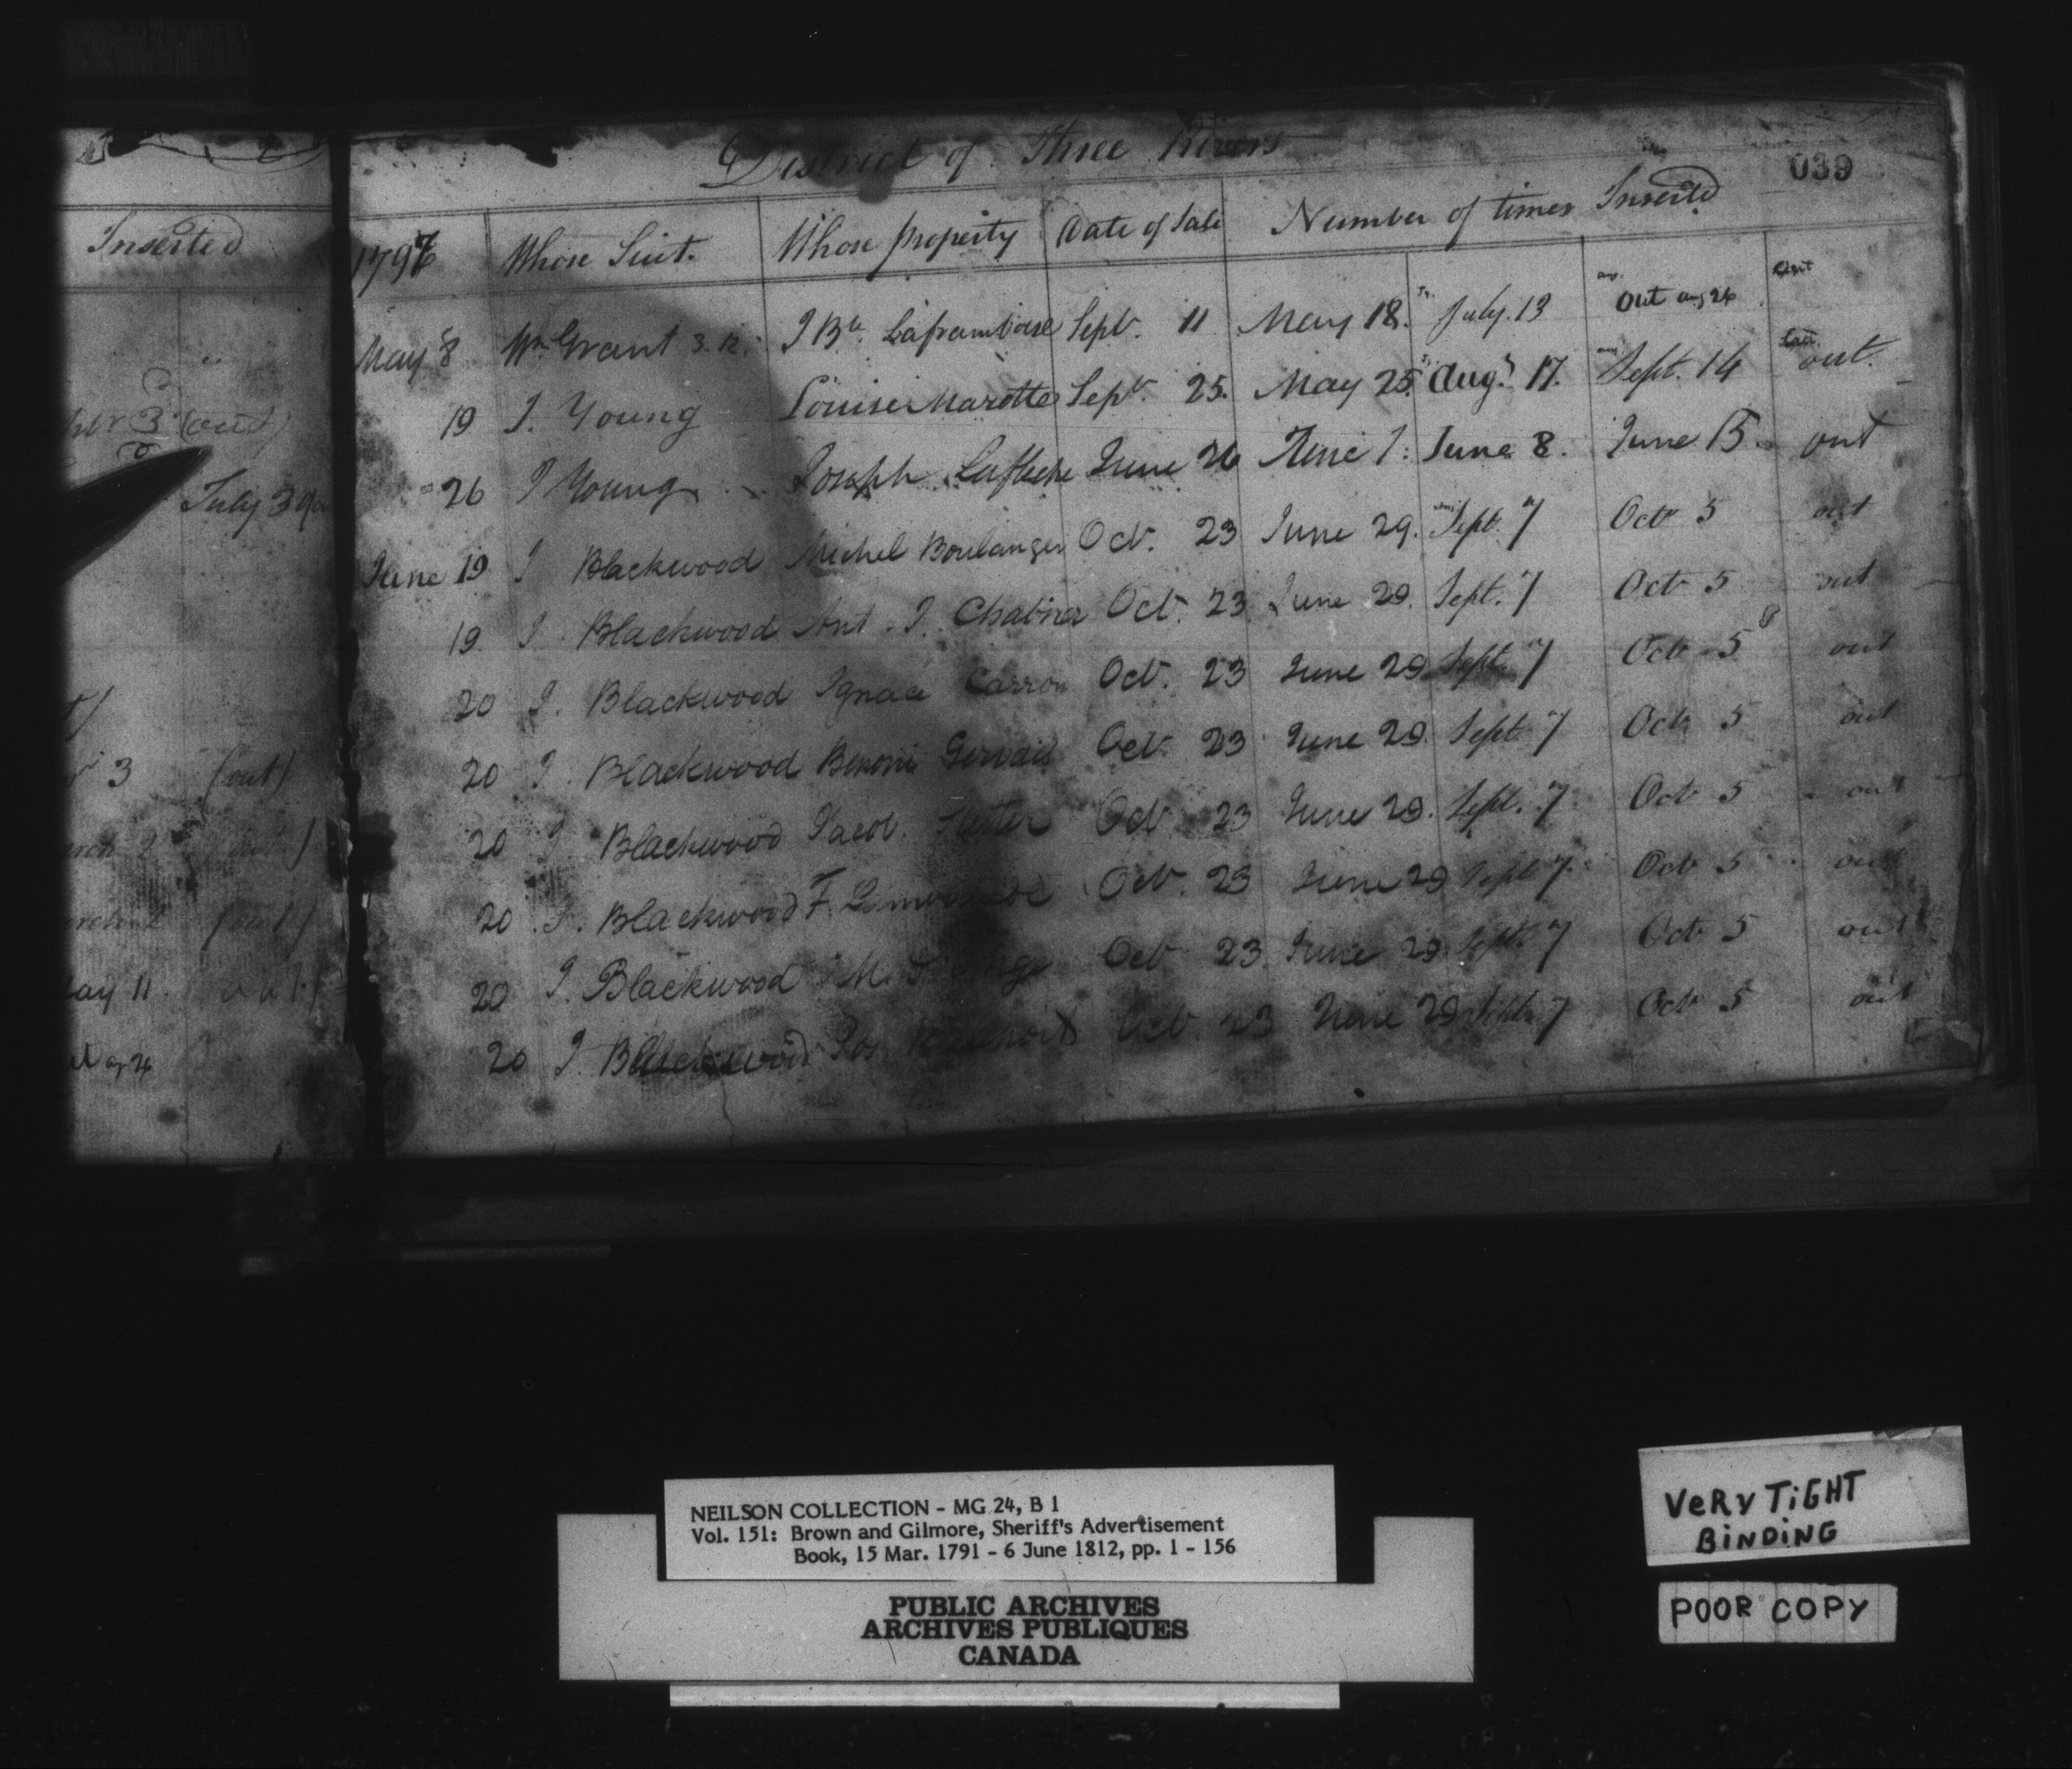 District of Three Rivers
039
Inserted
1797 Whose Suit. Whose property Date of Sale Number of times Inserted
May 8 Wm Grant 3. R. J Bte Laframboise Sept. 11 May 18. July. 13 out aug 24
19 J. Young Louise Marotte Sepr. 25. May 25. Augt 17. Sept. 14 out.
26 J Young Joseph June 26 June 1: June 8. June 15 out
(out)
July 3
June 19 J Blackwood Michel Boulanger Oct. 23 June 29. Sept. 7 Oct 5 out
19. J. Blackwood Ant. J. Oct. 23 June 29. Sept. 7 Oct 5 out
20 J. Blackwood Ignace Carron Oct. 23 June 29 Sept. 7 Oct 5 8 out
20 J. Blackwood Benoni Gervais Oct 23 June 29 Sept 7 Oct 5 out
3 (out)
20 J. Blackwood Jacob Oct. 23 June 29. Sept. 7 Oct 5 out
20 J. Blackwood F. Oct. 23 June 29 Sept 7 Oct 5 out
20 J. Blackwood M. Oct 23. June 29. Sept. 7 Oct 5 out
11
20 J. Blackwood Jos Oct 23 June 29 Sept. 7 Oct 5 out
NEILSON COLLECTION - MG 24, B 1
Vol. 151: Brown and Gilmore, Sheriff's Advertisement
Book, 15 Mar. 1791 - 6 June 1812, pp. 1 - 156
PUBLIC ARCHIVES
ARCHIVES PUBLIQUES
CANADA
VERY TiGHT
BiNDiNG
POOR COPY